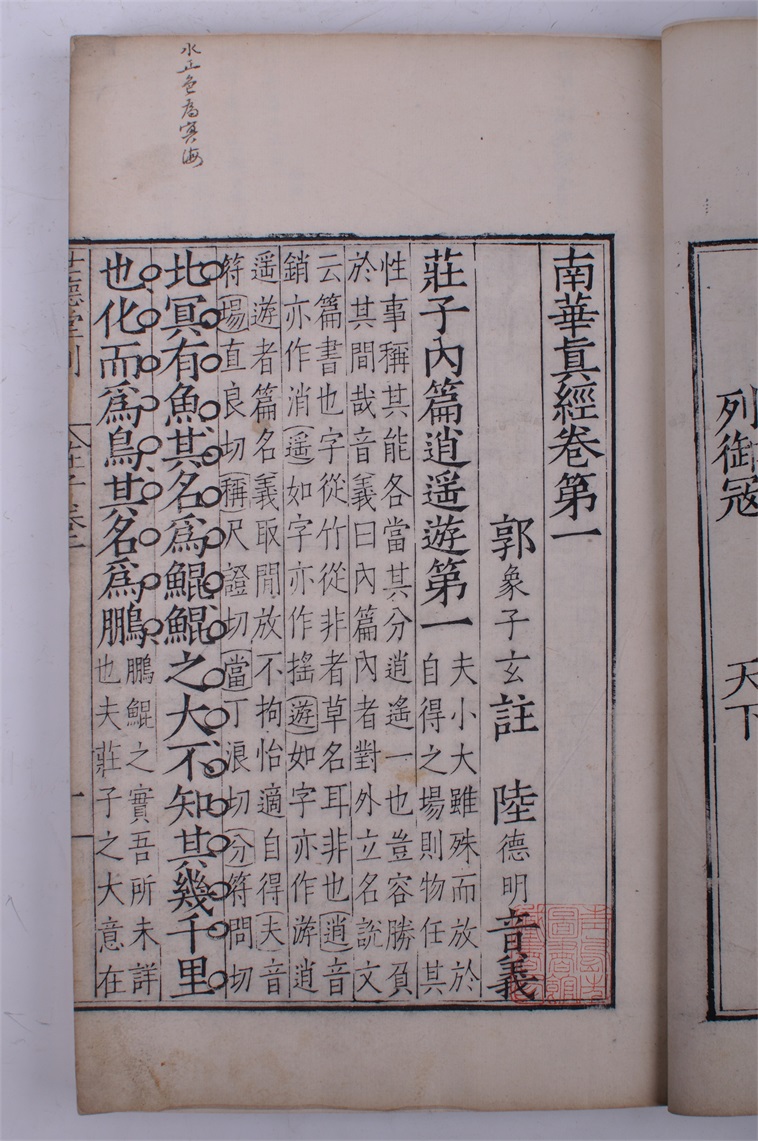 列御寇
天下
南華眞經卷第一
郭象子玄註 陸德明音義
莊子內篇逍遥遊第一
夫小大雖殊而放於
自得之場則物任其
性事稱其能各當其分逍遙一也豈容勝負
於其間哉音義曰內篇內者對外立名說文
云篇書也字從竹從非者草名耳非也逍音
銷亦作消遥如字亦作搖遊如字亦作游逍
遥遊者篇名義取閒放不拘怡適自得夫音
符場直良切稱尺證切當丁浪切分符問切
北冥有魚其名爲鯤鯤之大不知其幾千里
也化而爲鳥其名爲鵬
鵬鯤之實吾所未詳
也夫莊子之大意在
世德堂刊
水正色為冥海